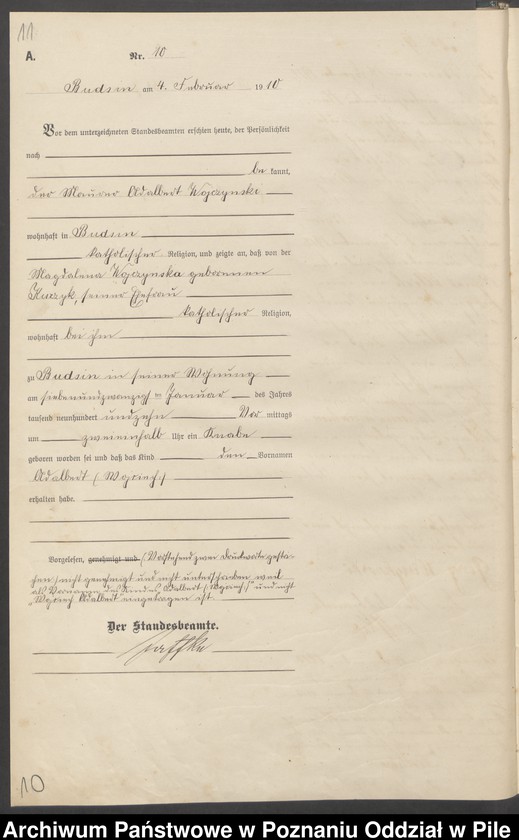 11
A.
Nr. 10
Budsin am 4. Februar 1910
Vor dem unterzeichneten Standesbeamten erschien heute, der Persönlichkeit
nach
bekannt,
der Maurer Adalbert Wojczynski
wohnhaft in Budsin
katholischer Religion, und zeigte an, daß von der
Magdalena Wojczynska geborenen
seiner Ehefrau
katholischer Religion,
wohnhaft bei ihm
zu Budsin in seiner Wohnung
am siebenundzwanzigsten Januar des Jahres
tausend neunhundert undzehn Vor mittags
um zweieinhalb Uhr ein Knabe
geboren worden sei und daß das Kind den Vornamen
Adalbert (Wojciech)
erhalten habe.
Vorgelesen, genehmigt und (Vorstehend zwei Druckworte gestri-
chen) nicht genehmigt und nicht unterschrieben weil
als Vornamen des Kindes "Adalbert (Wojciech)" und nicht
"Wojciech Adalbert" eingetragen ist.
Der Standesbeamte.
10
Archiwum Państwowe w Poznaniu Oddział w Pile